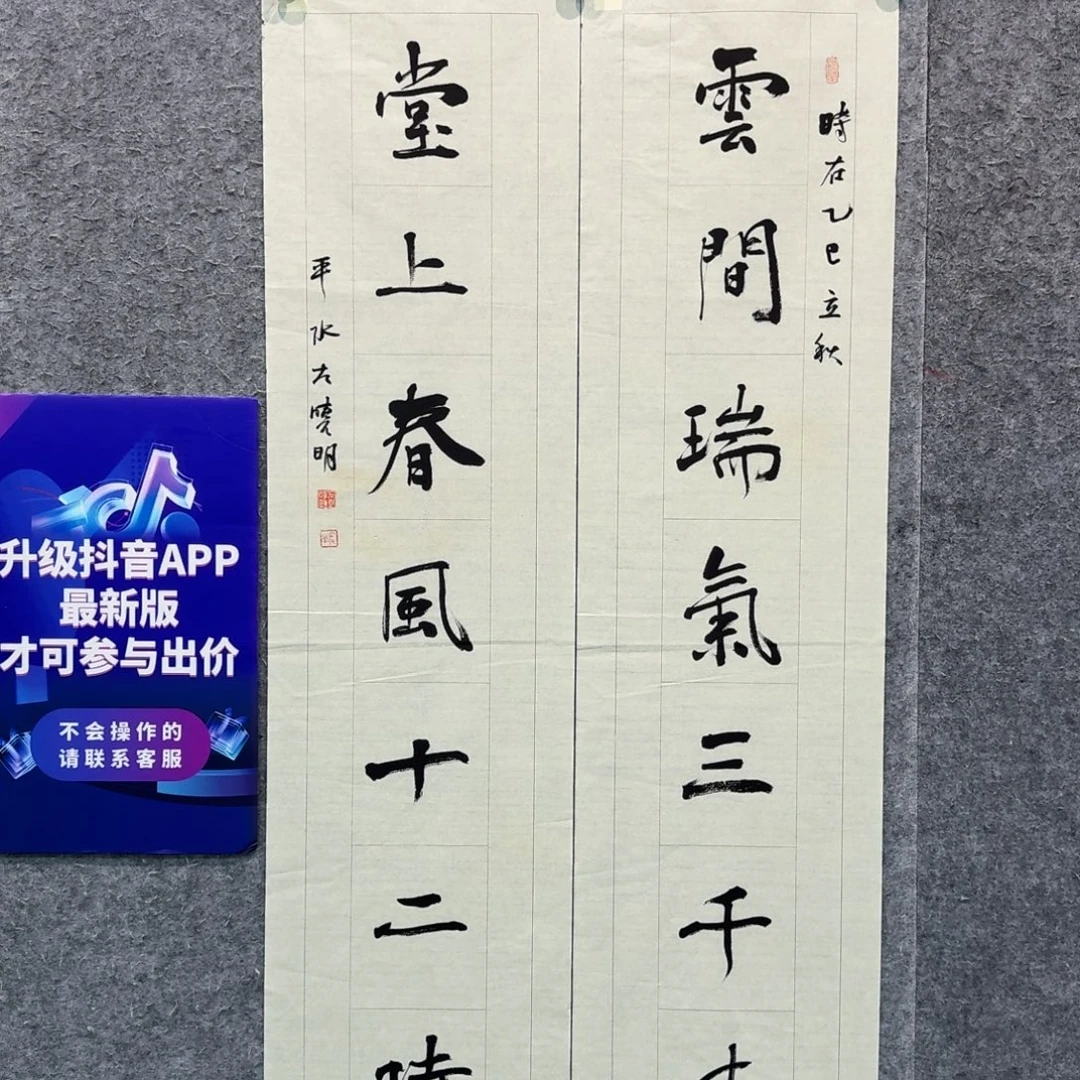 時在乙巳立秋
雲間瑞氣三千
堂上春風十二時
平水 曉明
升级抖音APP
最新版
才可参与出价
不会操作的
请联系客服